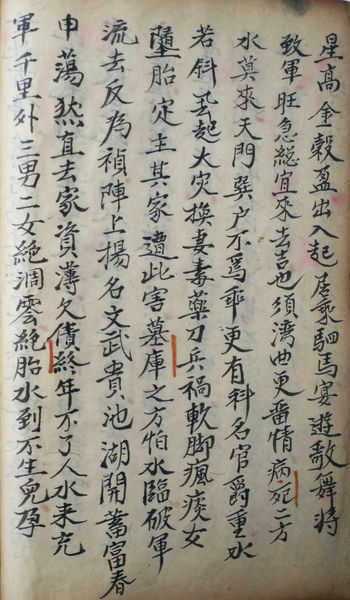 星高金穀盈出入起居乘駟馬宴遊歌舞將
致軍旺急総宜來去吉也須湾曲更畨情病宛二方
水莫來天門巽户不爲乖更有科名官爵重水
若斜丢起大灾換妻毒藥刀兵禍軟脚瘋痰女
墮胎定主其家遭此害墓庫之方怕水臨破軍
流去反為禎陣上揚名文武貴池湖開蓄富春
申蕩然直去家資薄欠債終年不了人水来充
軍千里外三男二女絶涸雲絶胎水到不生兒孕